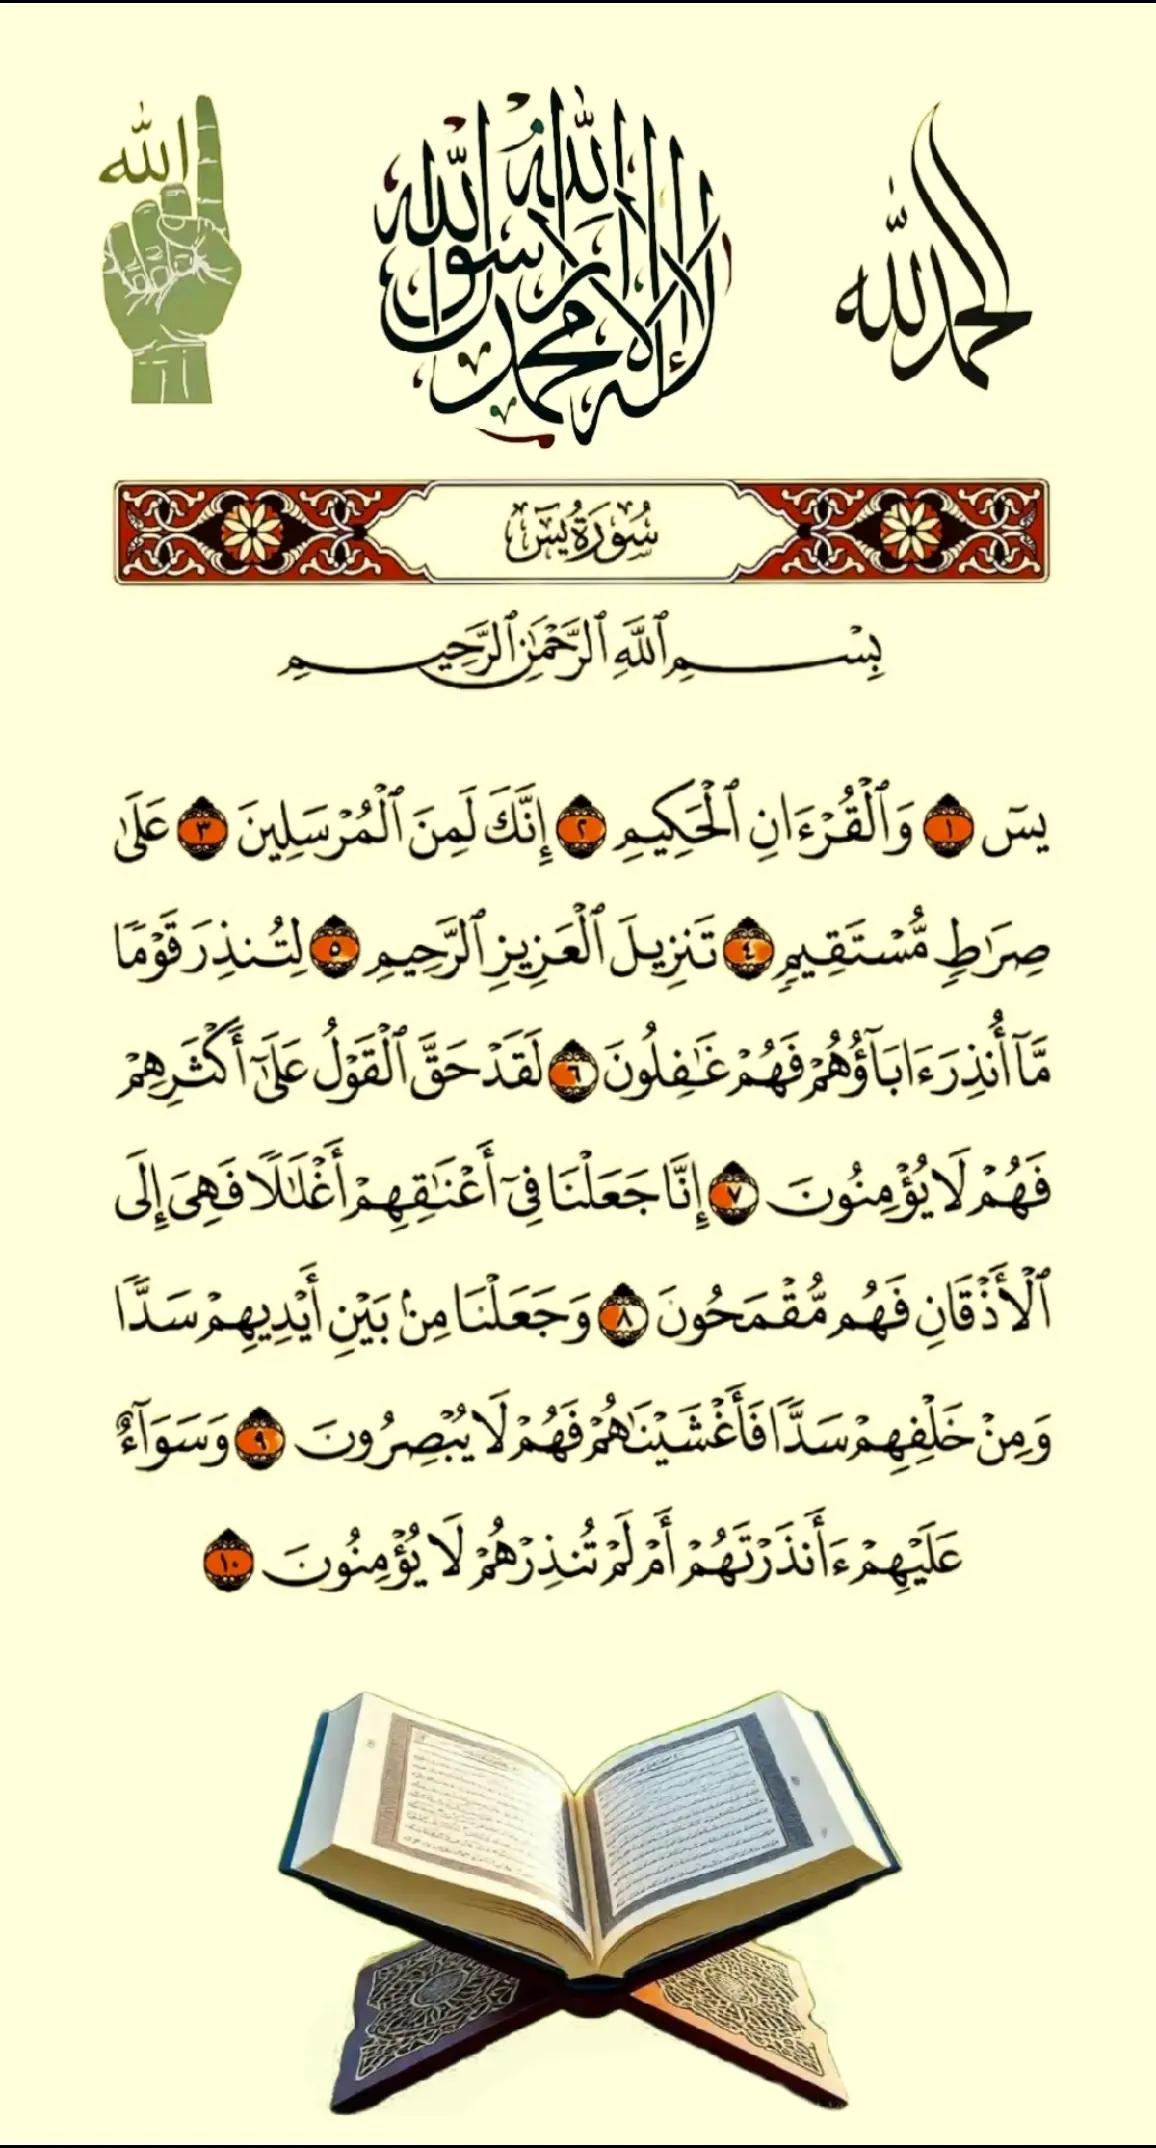 الحمد لله
لا إله إلا الله محمد رسول الله
الله
سُورَةُ يسٓ
بِسْمِ ٱللَّهِ ٱلرَّحْمَٰنِ ٱلرَّحِيمِ
يسٓ ١ وَٱلْقُرْءَانِ ٱلْحَكِيمِ ٢ إِنَّكَ لَمِنَ ٱلْمُرْسَلِينَ ٣ عَلَىٰ
صِرَٰطٍ مُّسْتَقِيمٍ ٤ تَنزِيلَ ٱلْعَزِيزِ ٱلرَّحِيمِ ٥ لِتُنذِرَ قَوْمًا
مَّآ أُنذِرَ ءَابَآؤُهُمْ فَهُمْ غَٰفِلُونَ ٦ لَقَدْ حَقَّ ٱلْقَوْلُ عَلَىٰٓ أَكْثَرِهِمْ
فَهُمْ لَا يُؤْمِنُونَ ٧ إِنَّا جَعَلْنَا فِىٓ أَعْنَٰقِهِمْ أَغْلَٰلًا فَهِىَ إِلَى
ٱلْأَذْقَانِ فَهُم مُّقْمَحُونَ ٨ وَجَعَلْنَا مِنۢ بَيْنِ أَيْدِيهِمْ سَدًّا
وَمِنْ خَلْفِهِمْ سَدًّا فَأَغْشَيْنَٰهُمْ فَهُمْ لَا يُبْصِرُونَ ٩ وَسَوَآءٌ
عَلَيْهِمْ ءَأَنذَرْتَهُمْ أَمْ لَمْ تُنذِرْهُمْ لَا يُؤْمِنُونَ ١٠